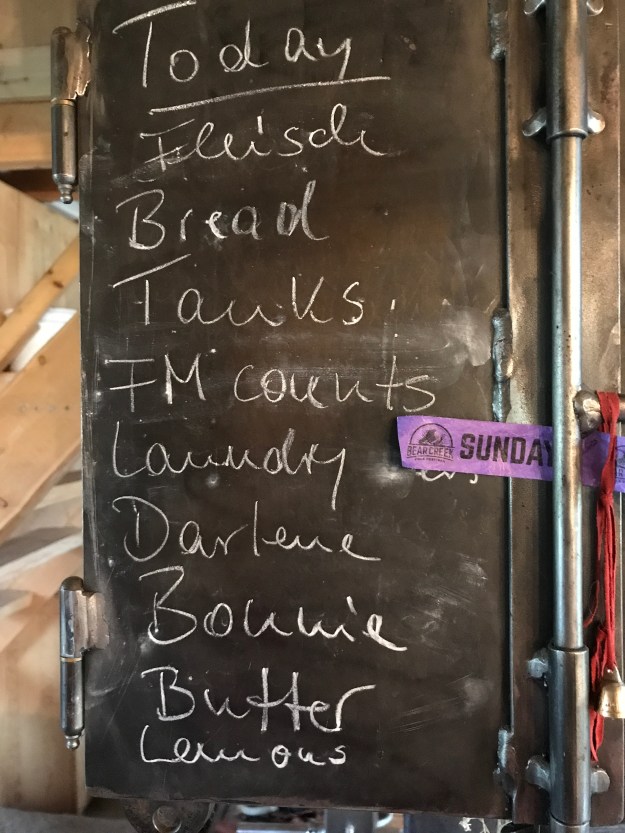 Today
Fleisch
Bread
Tanks
FM counts
Laundry
BEAR CREEK SUNDAY
Darlene
Bonnie
Butter
Lemons